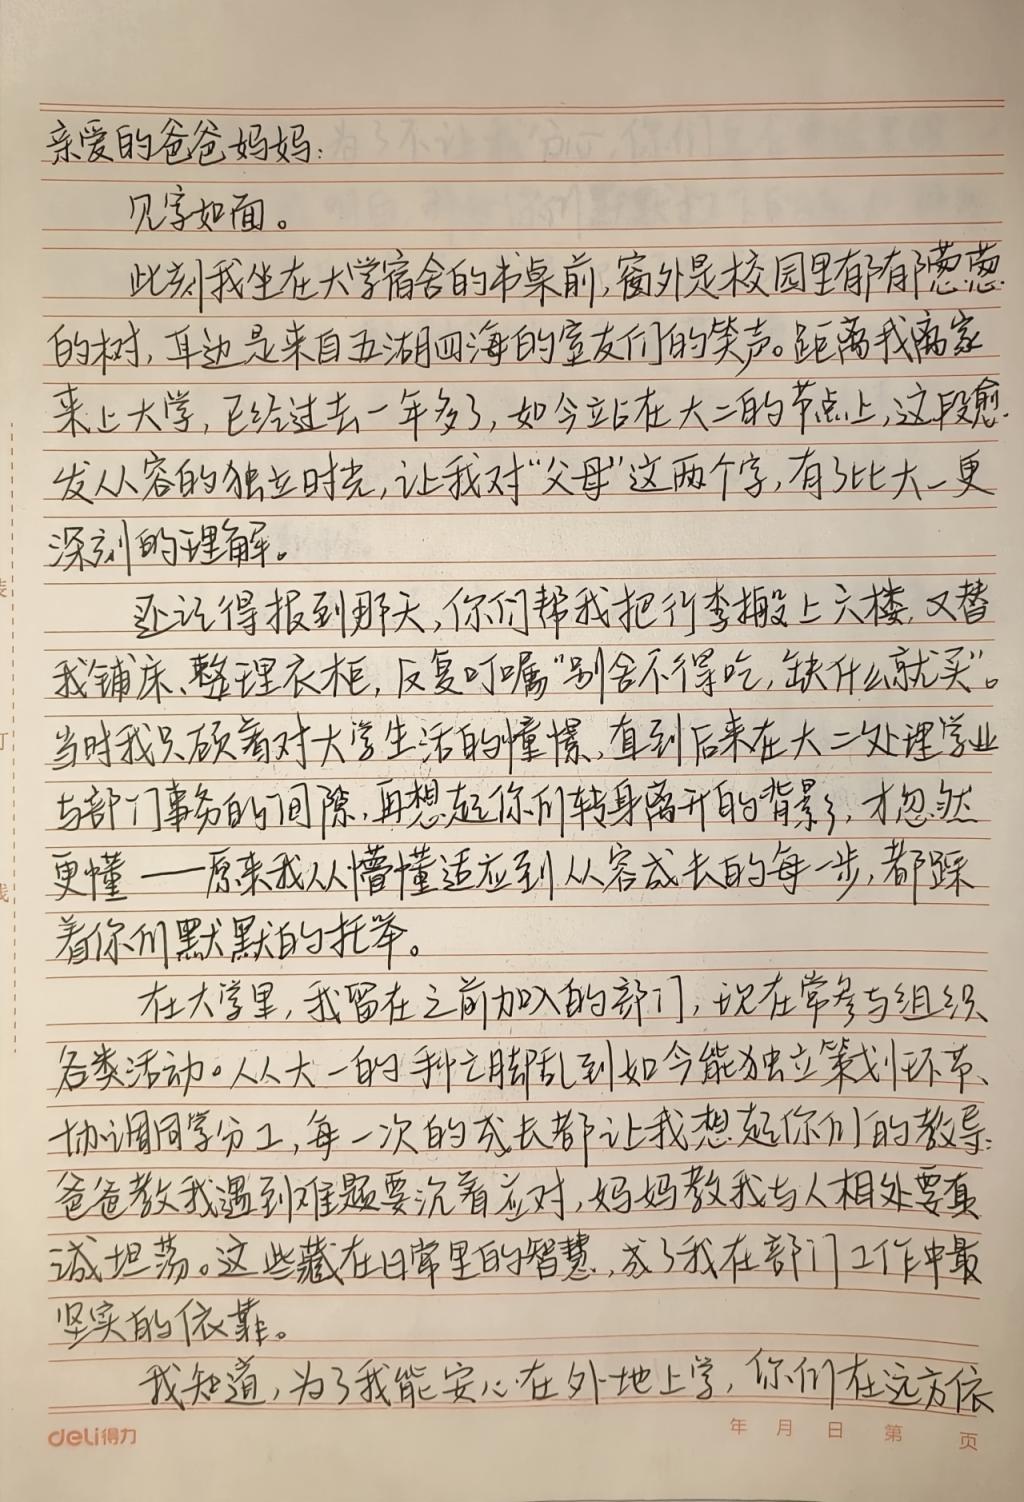 亲爱的爸爸妈妈:
见字如面。
此刻我坐在大学宿舍的书桌前,窗外是校园里郁郁葱葱
的树,耳边是来自五湖四海的室友们的笑声。距离我离家
来上大学,已经过去一年多了,如今站在大二的节点上,这段愈
发从容的独立时光,让我对“父母”这两个字,有了比大一更
深刻的理解。
还记得报到那天,你们帮我把行李搬上六楼,又替
我铺床、整理衣柜,反复叮嘱“别舍不得吃,缺什么就买”。
当时我只顾着对大学生活的憧憬,直到后来在大二处理学业
与部门事务的间隙,再想起你们转身离开的背影,才忽然
更懂——原来我从懵懂适应到从容成长的每一步,都踩
着你们默默的托举。
在大学里,我留在之前加入的部门,现在常参与组织
各类活动。从大一的手忙脚乱到如今能独立策划环节、
协调同学分工,每一次的成长都让我想起你们的教导:
爸爸教我遇到难题要沉着应对,妈妈教我与人相处要真
诚坦荡。这些藏在日常里的智慧,成了我在部门工作中最
坚实的依靠。
我知道,为了我能安心在外地上学,你们在远方依
deli得力
年 月 日 第 页